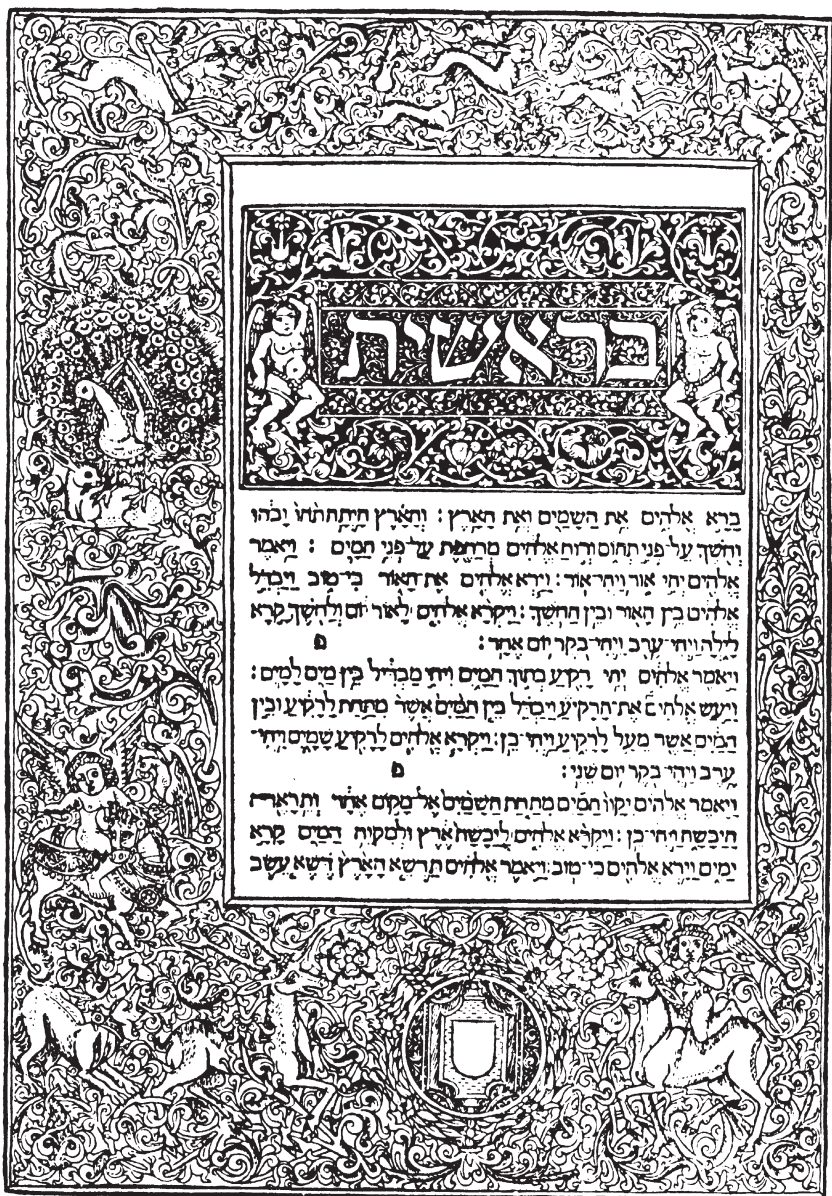 בראשית
בָּרָא אֱלֹהִים אֵת הַשָּׁמַיִם וְאֵת הָאָרֶץ : וְהָאָרֶץ הָיְתָה תֹהוּ וָבֹהוּ
וְחֹשֶׁךְ עַל־פְּנֵי תְהוֹם וְרוּחַ אֱלֹהִים מְרַחֶפֶת עַל־פְּנֵי הַמָּיִם : וַיֹּאמֶר
אֱלֹהִים יְהִי אוֹר וַיְהִי־אוֹר : וַיַּרְא אֱלֹהִים אֶת־הָאוֹר כִּי־טוֹב וַיַּבְדֵּל
אֱלֹהִים בֵּין הָאוֹר וּבֵין הַחֹשֶׁךְ : וַיִּקְרָא אֱלֹהִים לָאוֹר יוֹם וְלַחֹשֶׁךְ קָרָא
לָיְלָה וַיְהִי־עֶרֶב וַיְהִי־בֹקֶר יוֹם אֶחָד : פ
וַיֹּאמֶר אֱלֹהִים יְהִי רָקִיעַ בְּתוֹךְ הַמָּיִם וִיהִי מַבְדִּיל בֵּין מַיִם לָמָיִם :
וַיַּעַשׂ אֱלֹהִים אֶת־הָרָקִיעַ וַיַּבְדֵּל בֵּין הַמַּיִם אֲשֶׁר מִתַּחַת לָרָקִיעַ וּבֵין
הַמַּיִם אֲשֶׁר מֵעַל לָרָקִיעַ וַיְהִי־כֵן : וַיִּקְרָא אֱלֹהִים לָרָקִיעַ שָׁמָיִם וַיְהִי־
עֶרֶב וַיְהִי־בֹקֶר יוֹם שֵׁנִי : פ
וַיֹּאמֶר אֱלֹהִים יִקָּווּ הַמַּיִם מִתַּחַת הַשָּׁמַיִם אֶל־מָקוֹם אֶחָד וְתֵרָאֶה
הַיַּבָּשָׁה וַיְהִי־כֵן : וַיִּקְרָא אֱלֹהִים לַיַּבָּשָׁה אֶרֶץ וּלְמִקְוֵה הַמַּיִם קָרָא
יַמִּים וַיַּרְא אֱלֹהִים כִּי־טוֹב וַיֹּאמֶר אֱלֹהִים תַּדְשֵׁא הָאָרֶץ דֶּשֶׁא עֵשֶׂב